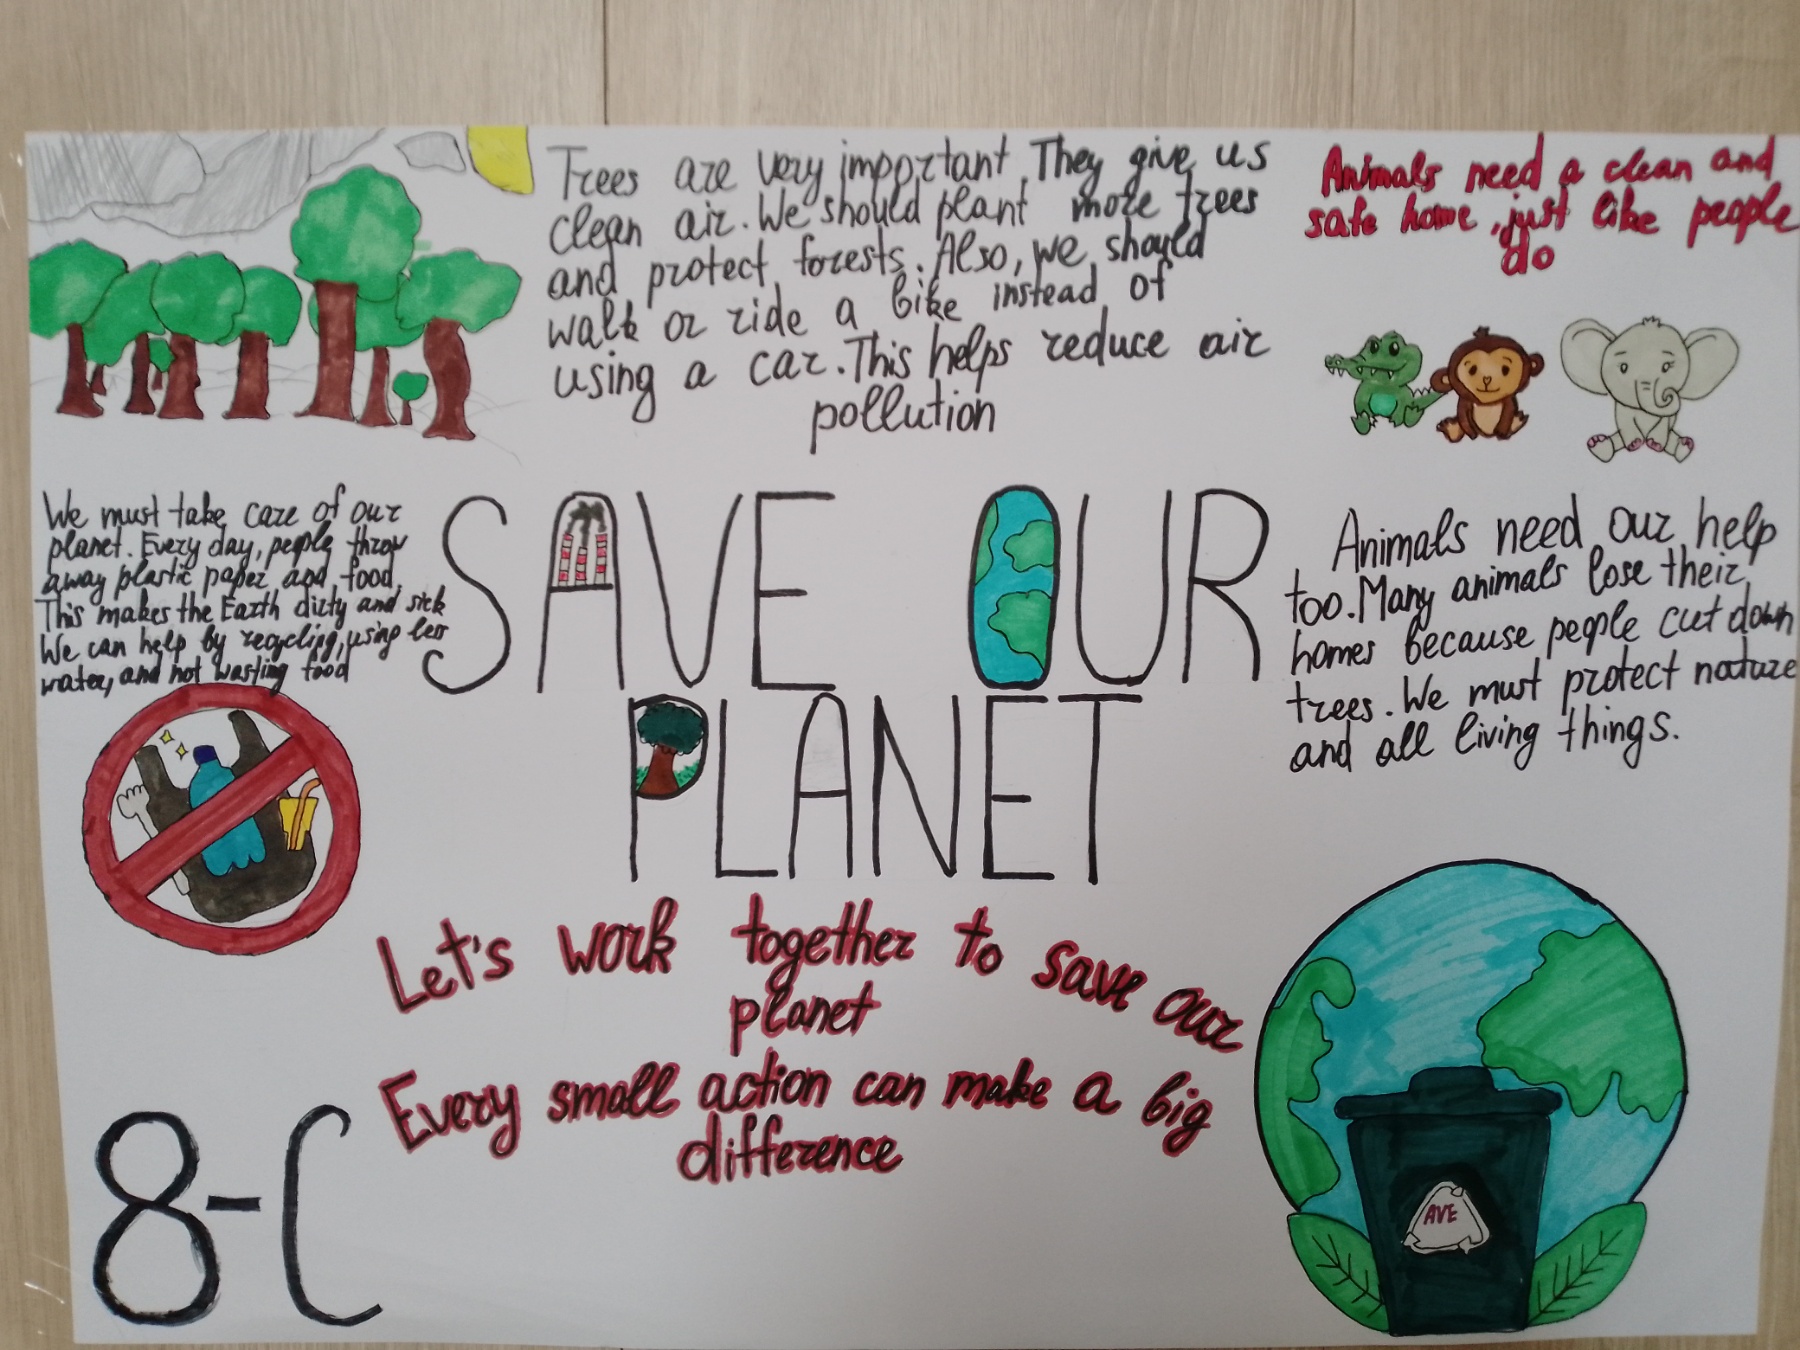 Trees are very important. They give us
clean air. We should plant more trees
and protect forests. Also, we should
walk or ride a bike instead of
using a car. This helps reduce air
pollution
Animals need a clean and
safe home, just like people
do
We must take care of our
planet. Every day, people throw
away plastic paper and food.
This makes the Earth dirty and sick
We can help by recycling, using less
water, and not wasting food
SAVE OUR
PLANET
Animals need our help
too. Many animals lose their
homes because people cut down
trees. We must protect nature
and all living things.
Let's work together to save our
planet
Every small action can make a big
difference
8-C
AVE